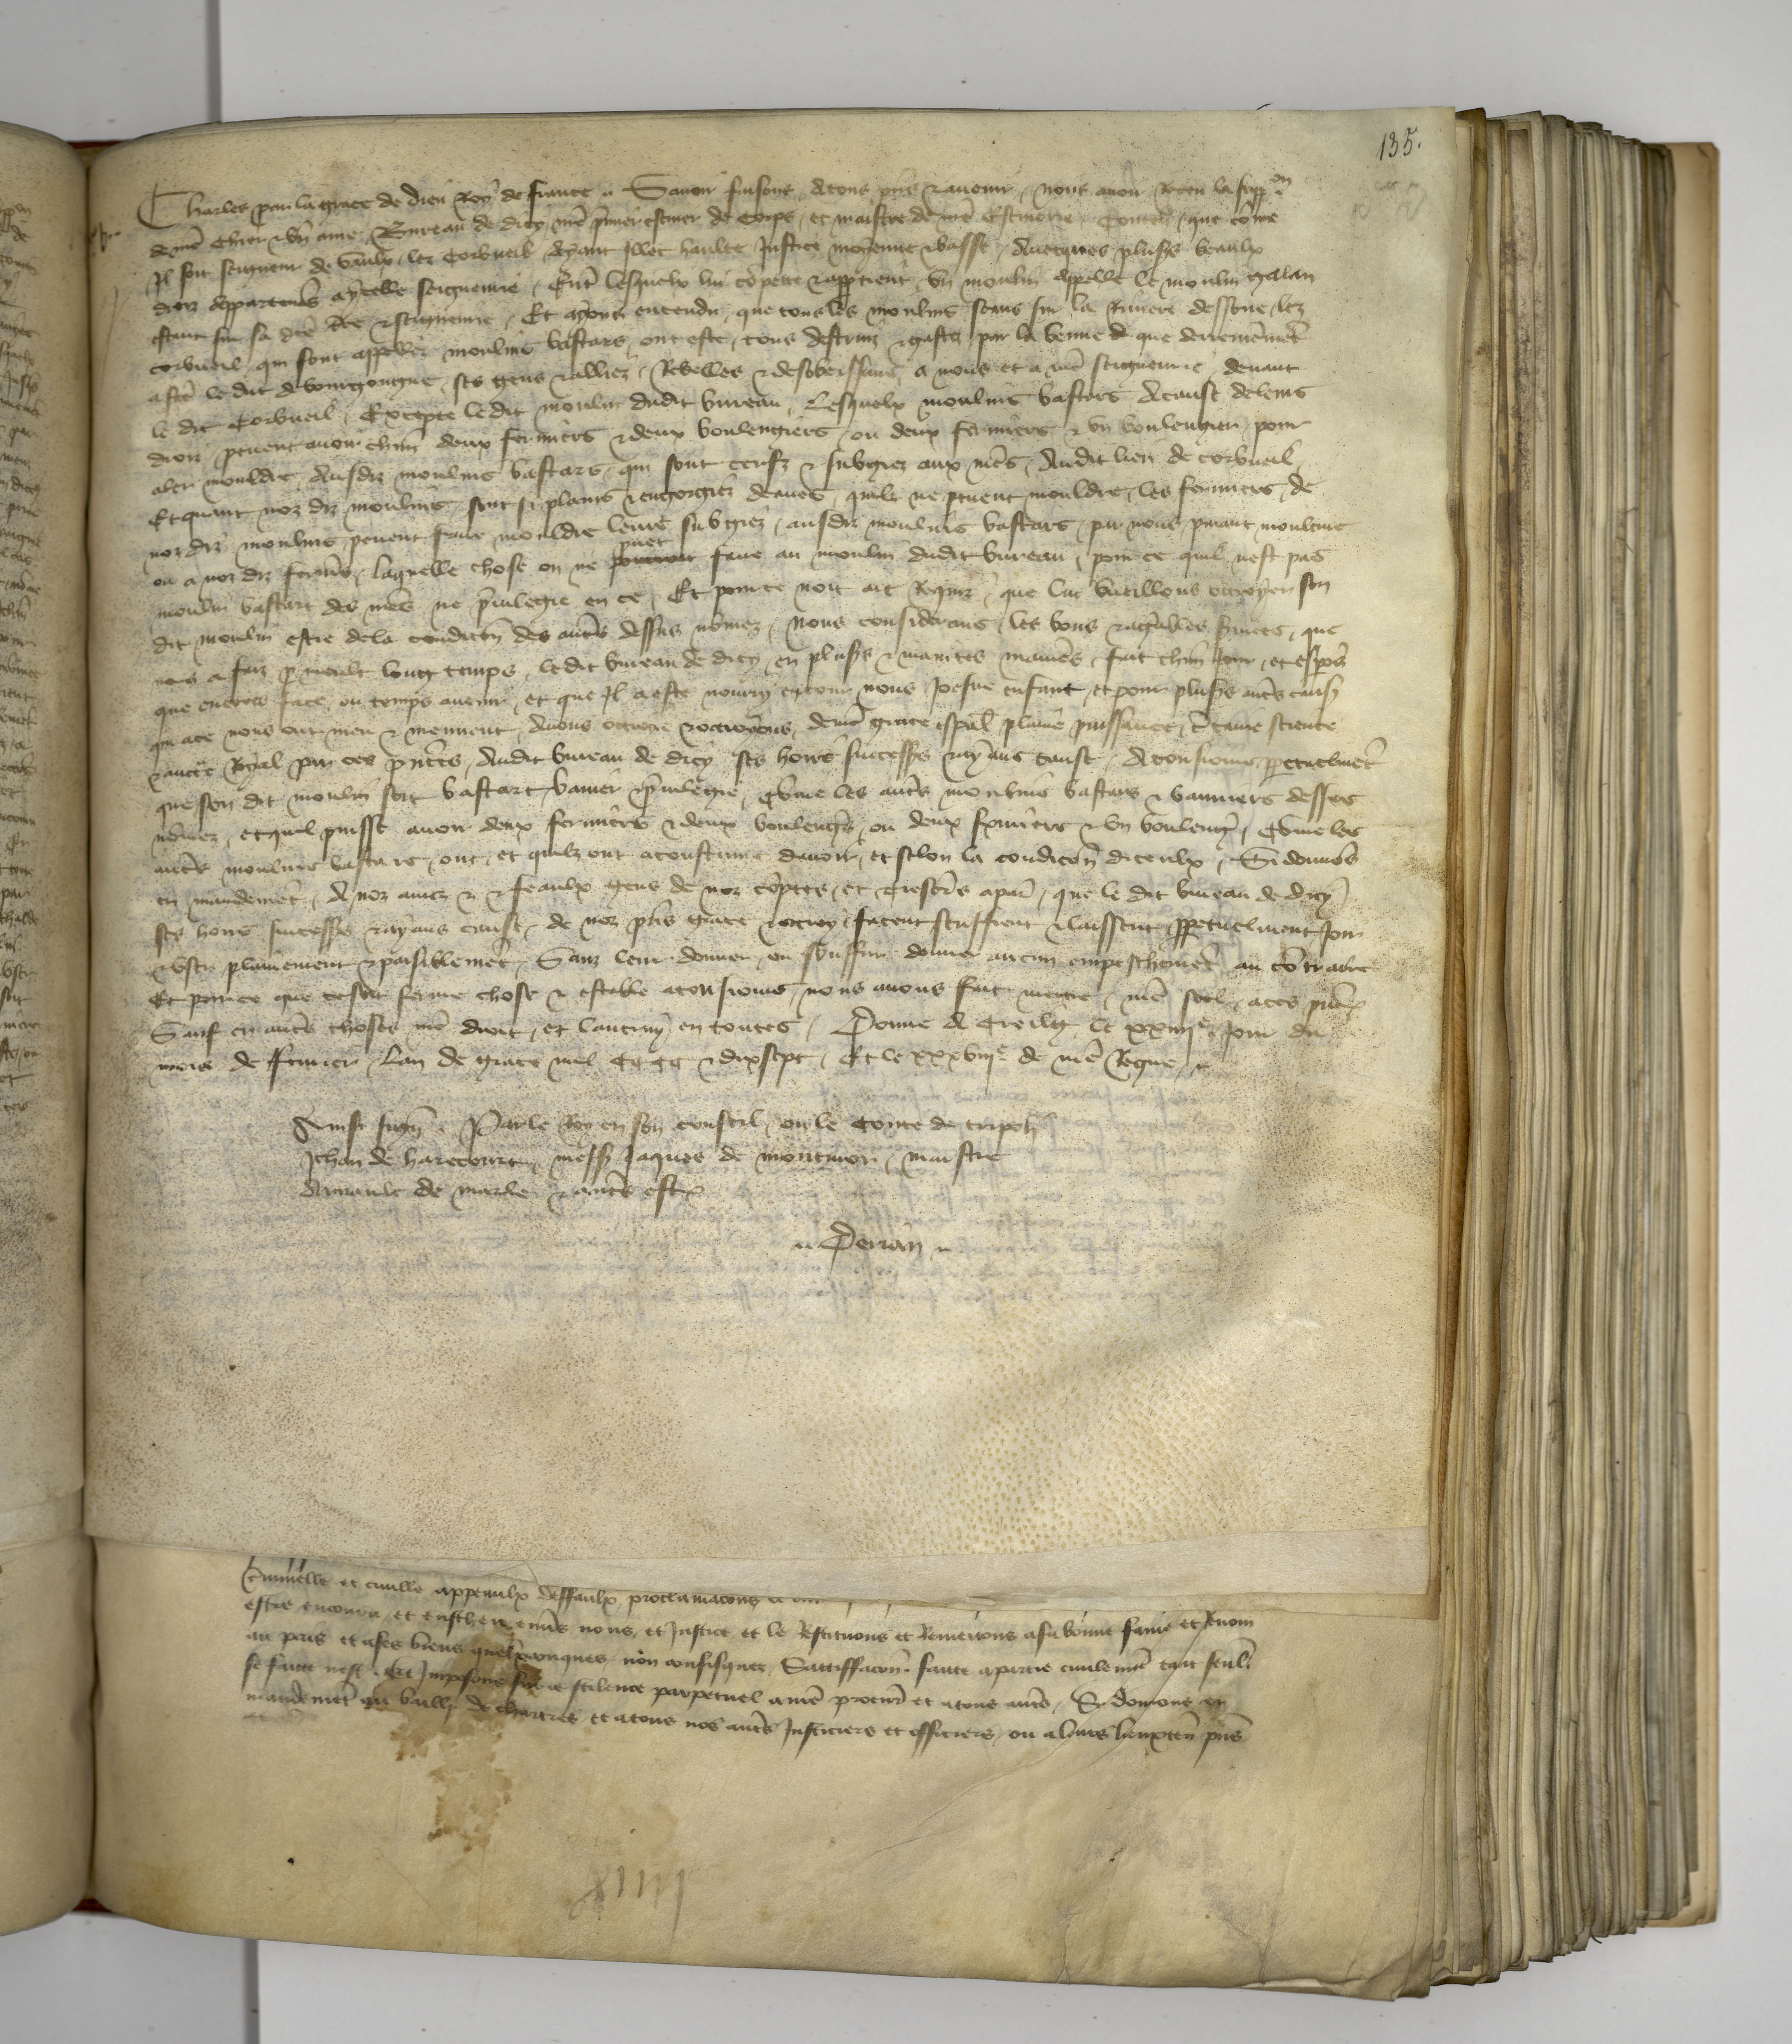 135.
Charles par la grace de dieu Roy de france . Savoir faisons atous pns et avenir nous avoir Receu la supp on
de nre chier et bn ame Bureau de dicy nre premier escuier de corps et maistre de nre Escuierie Conten que come
Il soit seigneur de vaulx lez Corbueil ayant illec haulte Justice moyenne et basse avecques plusrs beaulx
droiz appartenens aycelle seigneurie Entre lesquelx lui compette et appartient un moulin appelle le moulin galan
estant sur sa dite Rre et seigneurie Et ayons entendu que tous les moulins seans sur la Riviere dessoue lez
corbueil qui sont appellez moulins bastars ont este tous destruiz et gastez par la venue que derrenement
a fte le duc de bourgongne ses gens et alliez Rebelles et desobeissans a nous et a nre seigneurie devant
le dit Corbueil Excepte le dit moulin dudit bureau Lesquelx moulins bastars Acause de leurs
droiz pevent avoir chun deux fermiers et deux boulengiers ou deux fermiers et un boulengier pour
aler mouldre Ausdiz moulins bastars qui sont cerfz et subgiez aux nres Audit lieu de corbueil
Et quant noz diz moulins sont si plains et engorgiez deaues quilz ne pevent mouldre les fermiers de
noz diz moulins pevent faire mouldre leurs subgiez ausdiz moulins bastars par nous paiant mousture
ou a noz diz fermrs laquelle chose on ne puet faire au moulin dudit bureau pour ce quil nest pas
moulin bastart des nres ne privilegie en ce Et pour ce nous ait Requis que lui vueillons octroyer son
dit moulin estre dela condicon des autres dessus nomez Nous considerans les bons et agreables services que
nous a faiz par moult long temps le dit bureau de dicy en plusrs et maintes manieres fait chun Jour et esperons
que encores face ou temps avenir et que Il a este nourry entour nous Joesne enfant et pour plusrs autres causes
qui ace nous ont meu et meuvent Avons octroie et octroyons de nre grace espal plaine puissance Certaine science
et aucte Royal par ces pntes Audit bureau de dicy ses hoirs successrs et ayans cause Atousiours perpetuelment
que son dit moulin soit bastart banier et privilegie come les autres moulins bastars et banniers dessus
nomez et quil puisse avoir deux fermiers et deux boulengrs ou deux fermiers et un boulengr Come les
autres moulins bastars ont et quilz ont acoustume davoir et selon la condicon diceulx Si donnons
en mandement A noz amez et feaulx gens de noz comptes et tresorrs apars que le dit bureau de dicy
ses hoirs successrs et ayans cause de noz pns grace et octroy facent seuffrent et laissent perpetuelment Joir
et user plainement et paisiblement Sanz leur donner ou souffrir donner aucun empeschement au contraire
Et pource que cesoit ferme chose et estable atousiours nous avons fait mettre nre seel aces pntes
Sauf en autres choses nre droit et lautruy en toutes Donne A Creilg le xxiiii e Jour du
mois de fevrier Lan de grace mil cccc et dixsept Et le xxxviii e de nre Regne
Ainsi sign Par le Roy en son conseil ou le Conte de tripoli
Jehan de harecourt messr Jaques de montmor maistre
Arnault de marle et autres estoient
Derian
Criminelle et civille appeaulx deffaulx proclamacons
estre encouru et enscheu envers nous et Justice et le Restituons et Remettons asa bonne fame et Renom
au pais et ases biens quelxconques non confisquez Sattiffacon faicte apartie civilemt tant seult
se faite nest Et Imposons sur ce scilence parpetuel anre procur et atous autres Sy donnons en
mandement au bailly de chartres et atous nos autres Justiciers et officiers ou aleurs lieuxten pns
xiiii